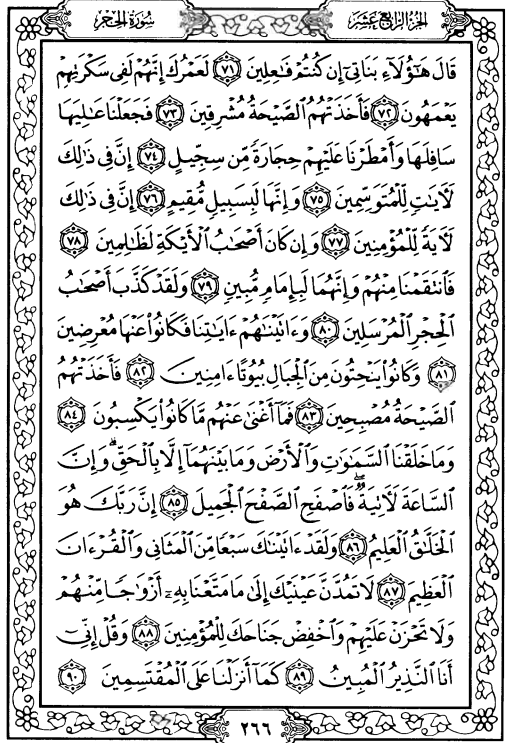 سُورَةُ الحِجْرِ
الجُزْءُ الرَّابِعَ عَشَرَ
قَالَ هَٰٓؤُلَآءِ بَنَاتِىٓ إِن كُنتُمْ فَٰعِلِينَ ٧١ لَعَمْرُكَ إِنَّهُمْ لَفِى سَكْرَتِهِمْ
يَعْمَهُونَ ٧٢ فَأَخَذَتْهُمُ ٱلصَّيْحَةُ مُشْرِقِينَ ٧٣ فَجَعَلْنَا عَٰلِيَهَا
سَافِلَهَا وَأَمْطَرْنَا عَلَيْهِمْ حِجَارَةً مِّن سِجِّيلٍ ٧٤ إِنَّ فِى ذَٰلِكَ
لَـَٔايَٰتٍ لِّلْمُتَوَسِّمِينَ ٧٥ وَإِنَّهَا لَبِسَبِيلٍ مُّقِيمٍ ٧٦ إِنَّ فِى ذَٰلِكَ
لَـَٔايَةً لِّلْمُؤْمِنِينَ ٧٧ وَإِن كَانَ أَصْحَٰبُ ٱلْأَيْكَةِ لَظَٰلِمِينَ ٧٨
فَٱنتَقَمْنَا مِنْهُمْ وَإِنَّهُمَا لَبِإِمَامٍ مُّبِينٍ ٧٩ وَلَقَدْ كَذَّبَ أَصْحَٰبُ
ٱلْحِجْرِ ٱلْمُرْسَلِينَ ٨٠ وَءَاتَيْنَٰهُمْ ءَايَٰتِنَا فَكَانُوا۟ عَنْهَا مُعْرِضِينَ
٨١ وَكَانُوا۟ يَنْحِتُونَ مِنَ ٱلْجِبَالِ بُيُوتًا ءَامِنِينَ ٨٢ فَأَخَذَتْهُمُ
ٱلصَّيْحَةُ مُصْبِحِينَ ٨٣ فَمَآ أَغْنَىٰ عَنْهُم مَّا كَانُوا۟ يَكْسِبُونَ ٨٤
وَمَا خَلَقْنَا ٱلسَّمَٰوَٰتِ وَٱلْأَرْضَ وَمَا بَيْنَهُمَآ إِلَّا بِٱلْحَقِّ ۗ وَإِنَّ
ٱلسَّاعَةَ لَـَٔاتِيَةٌ ۖ فَٱصْفَحِ ٱلصَّفْحَ ٱلْجَمِيلَ ٨٥ إِنَّ رَبَّكَ هُوَ
ٱلْخَلَّٰقُ ٱلْعَلِيمُ ٨٦ وَلَقَدْ ءَاتَيْنَٰكَ سَبْعًا مِّنَ ٱلْمَثَانِى وَٱلْقُرْءَانَ
ٱلْعَظِيمَ ٨٧ لَا تَمُدَّنَّ عَيْنَيْكَ إِلَىٰ مَا مَتَّعْنَا بِهِۦٓ أَزْوَٰجًا مِّنْهُمْ
وَلَا تَحْزَنْ عَلَيْهِمْ وَٱخْفِضْ جَنَاحَكَ لِلْمُؤْمِنِينَ ٨٨ وَقُلْ إِنِّىٓ
أَنَا ٱلنَّذِيرُ ٱلْمُبِينُ ٨٩ كَمَآ أَنزَلْنَا عَلَى ٱلْمُقْتَسِمِينَ ٩٠
٢٦٦